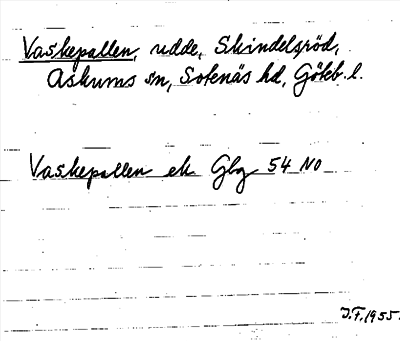 Vaskepallen, udde, Skindelsröd,
Askums sn, Sotenäs hd, Göteb. l.
Vaskepallen ek Gbg 54 NO
J.F. 1955.